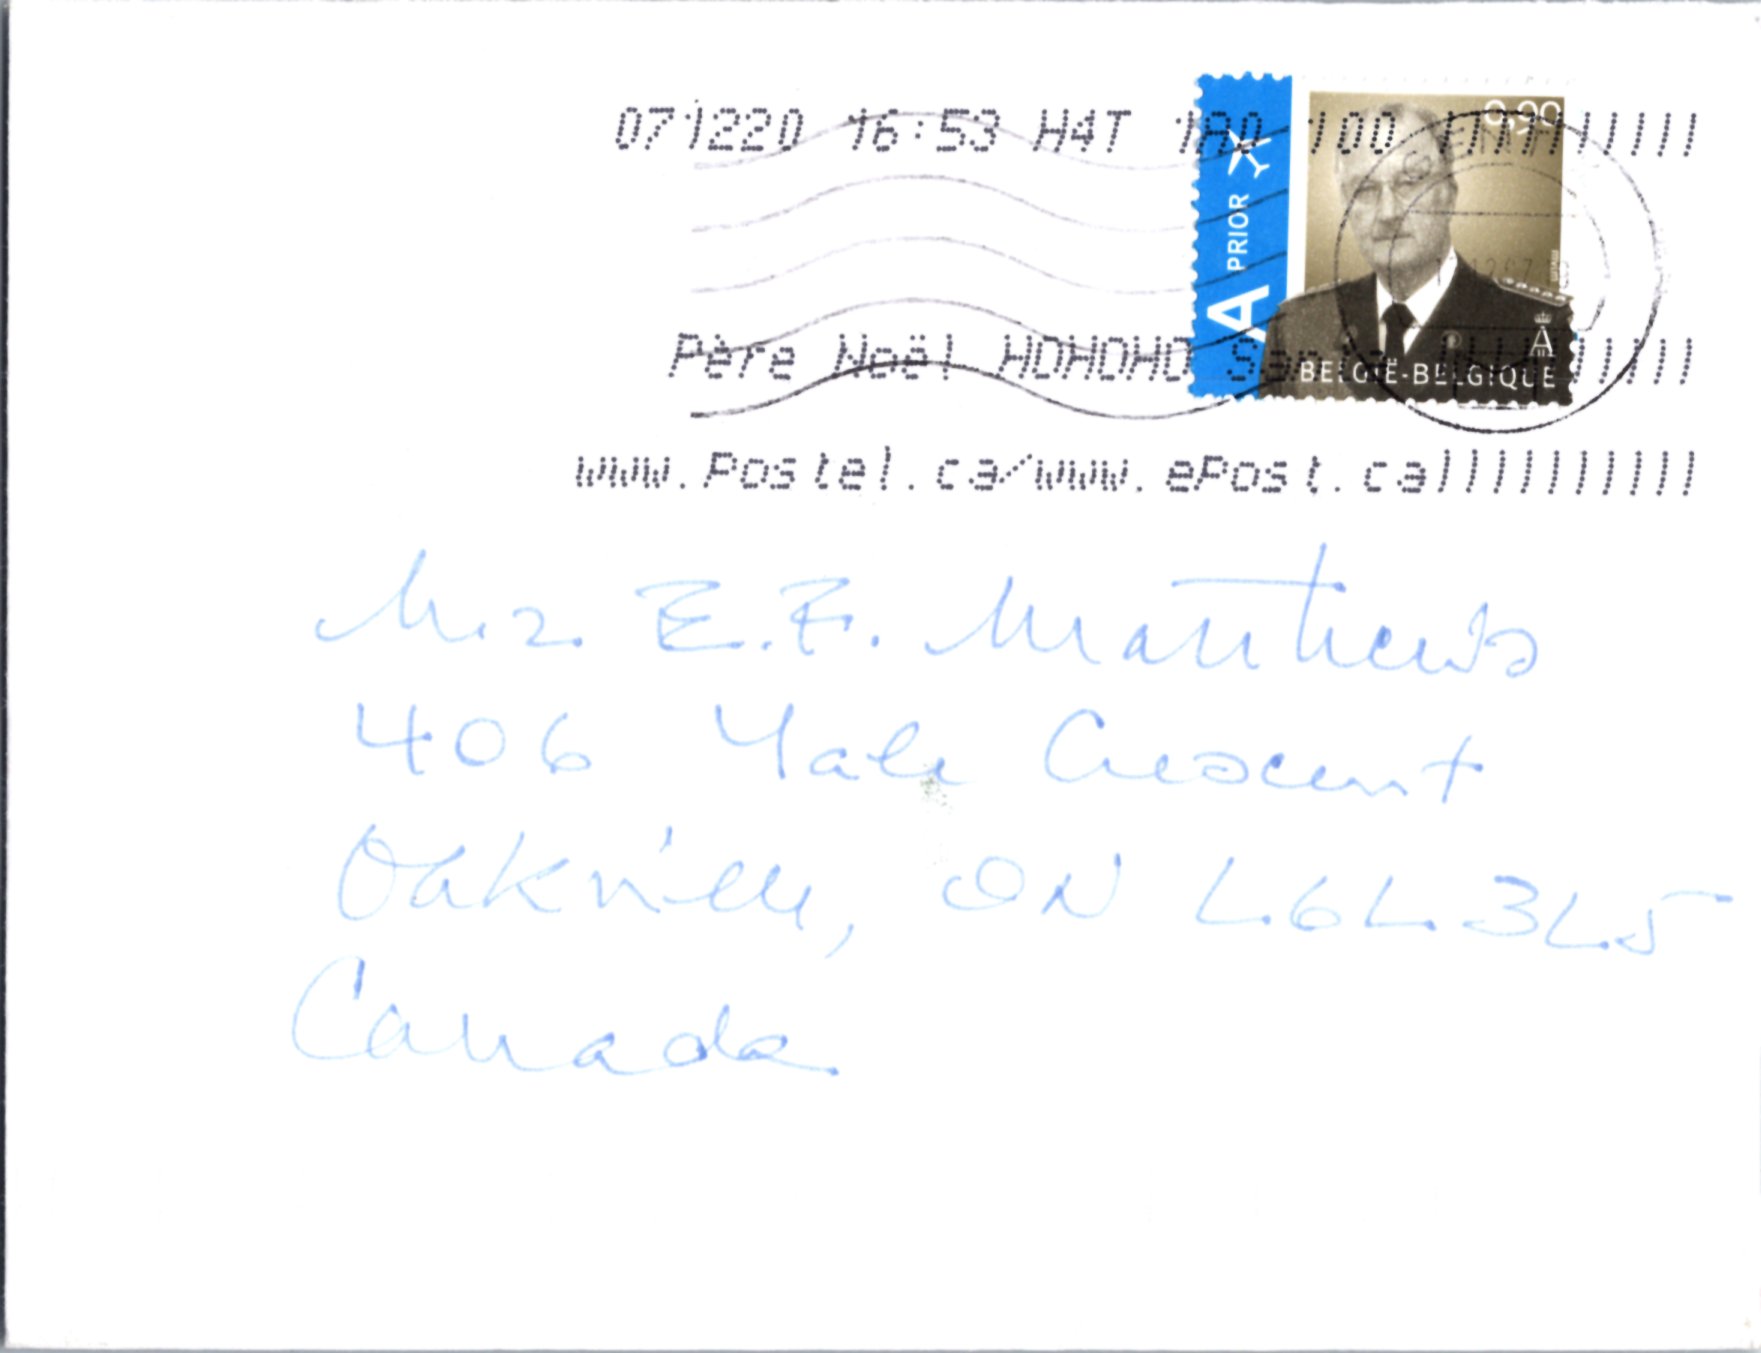 071220 16:53 H4T 1A0 100
0,90
A PRIOR
Père Noël HOHOHO Santa
BELGIË-BELGIQUE
www.postel.ca/www.epost.ca
Mr. E.F. Matthews
406 Yale Crescent
Oakville, ON L6L 3L5
Canada